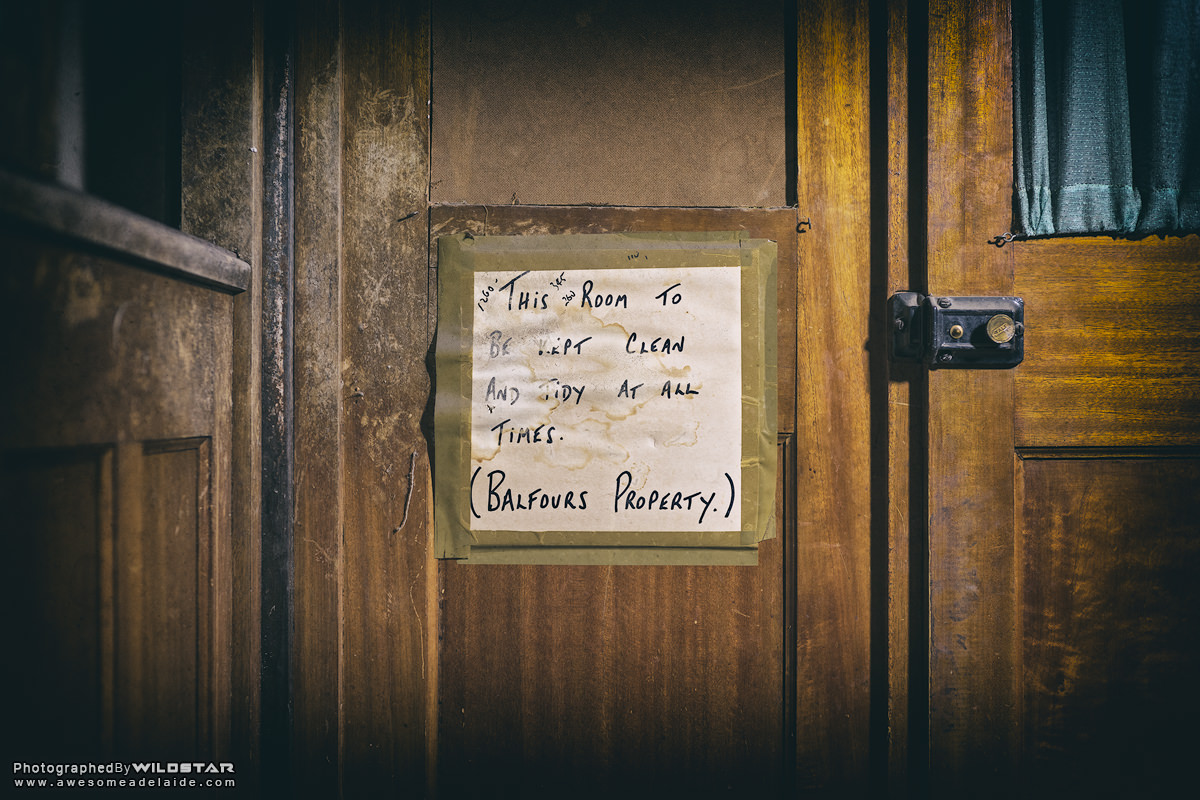 1260.
345
260
THIS ROOM TO
BE KEPT CLEAN
AND TIDY AT ALL
TIMES.
(BALFOURS PROPERTY.)
PhotographedByWILDSTAR
www.awesomeadelaide.com